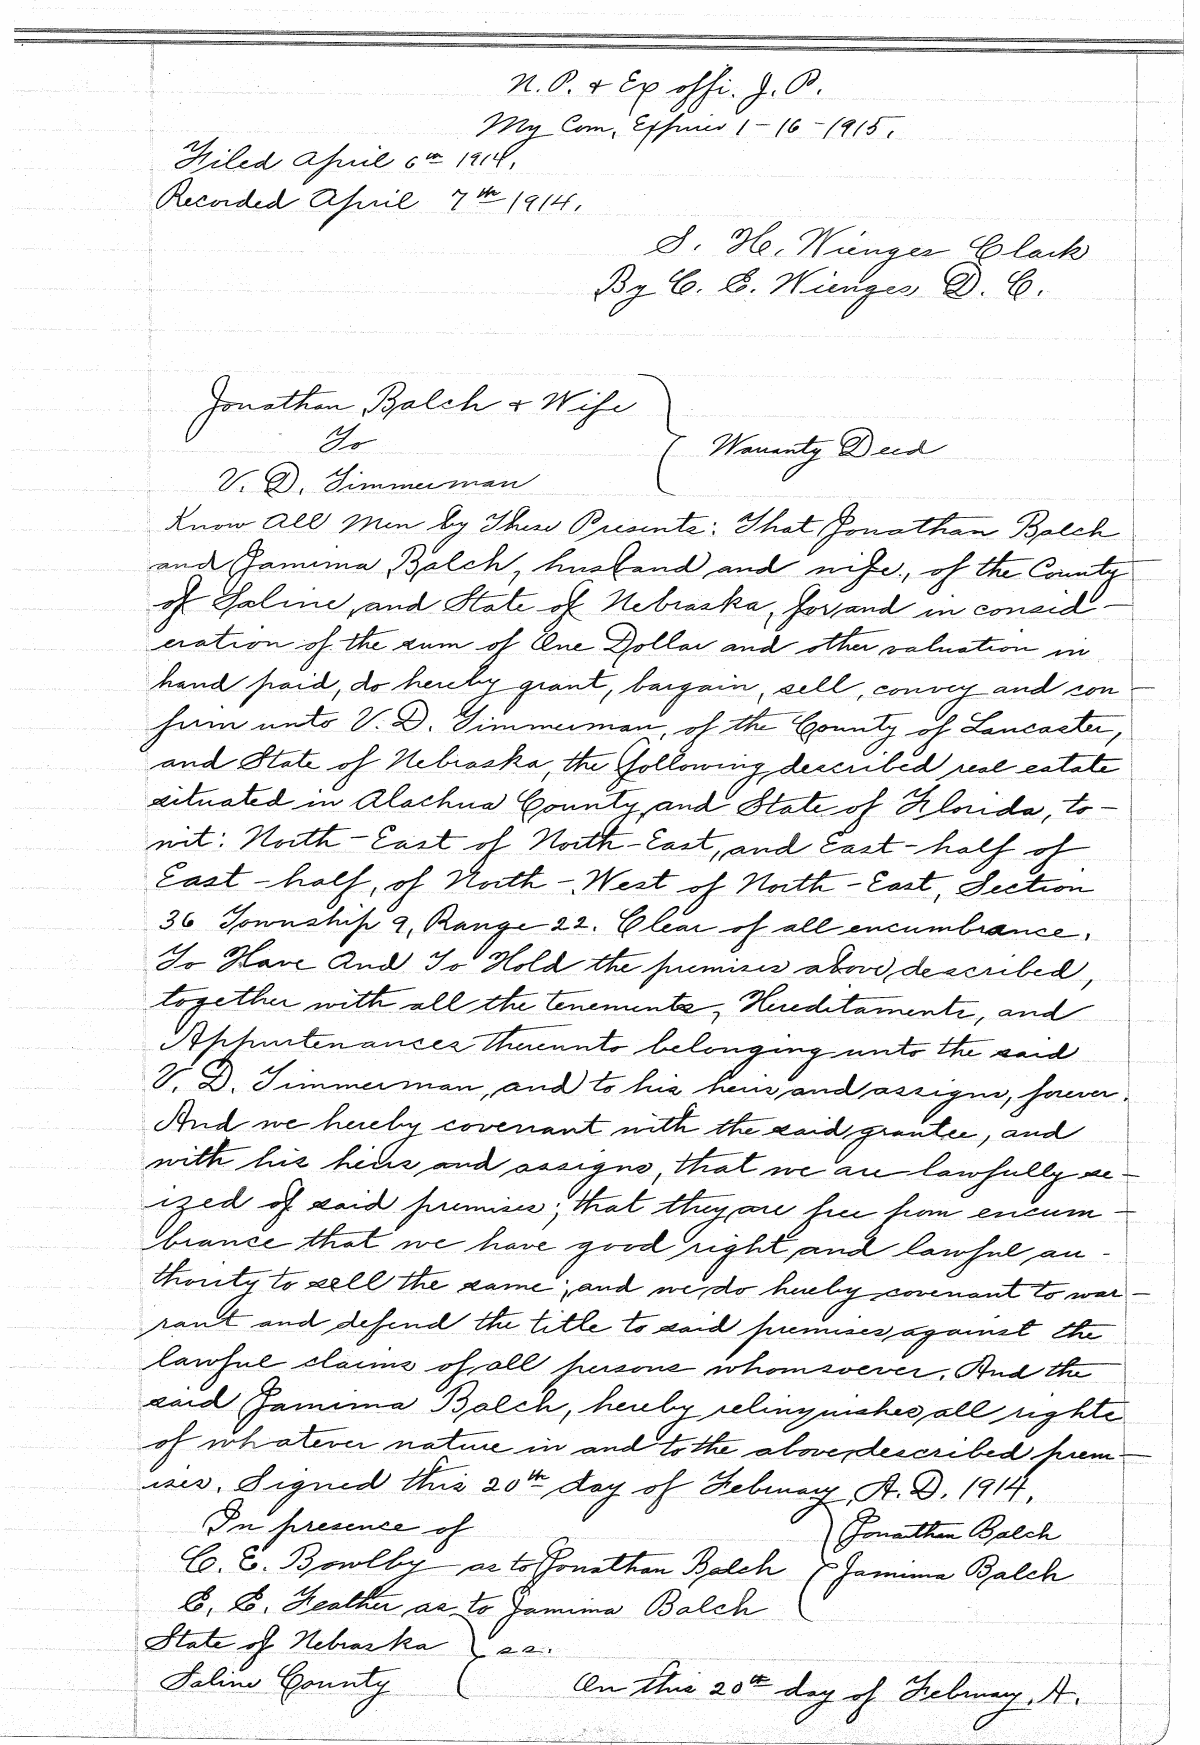 N. P. & Ex offi. J. P.
My Com, Expires 1-16-1915.
Filed April 6th 1914.
Recorded April 7th 1914.
S. H. Wienges Clark
By C. E. Wienges D. C.
Jonathan Balch & Wife
To
Warranty Deed
V. D. Timmerman
Know All Men by These Presents: That Jonathan Balch
and Jamima Balch, husband and wife, of the County
of Saline, and State of Nebraska, for and in consid-
eration of the sum of One Dollar and other valuation in
hand paid, do hereby grant, bargain, sell, convey and con-
firm unto V. D. Timmerman, of the County of Lancaster,
and State of Nebraska, the following described real estate
situated in Alachua County, and State of Florida, to-
wit: North-East of North-East, and East-half of
East-half, of North-West of North-East, Section
36 Township 9, Range 22. Clear of all encumbrance.
To Have And To Hold the premises above described,
together with all the tenements, Hereditaments, and
Appurtenances thereunto belonging unto the said
V. D. Timmerman, and to his heirs and assigns, forever.
And we hereby covenant with the said grantee, and
with his heirs and assigns, that we are lawfully se-
ized of said premises; that they are free from encum-
brance that we have good right and lawful au-
thority to sell the same; and we do hereby covenant to war-
rant and defend the title to said premises against the
lawful claims of all persons whomsoever. And the
said Jamima Balch, hereby relinquishes all rights
of whatever nature in and to the above described prem-
ises. Signed this 20th day of February, A. D. 1914.
In presence of Jonathan Balch
C. E. Bowlby as to Jonathan Balch Jamima Balch
E. E. Feather as to Jamima Balch
State of Nebraska ss.
Saline County On this 20th day of February, A.